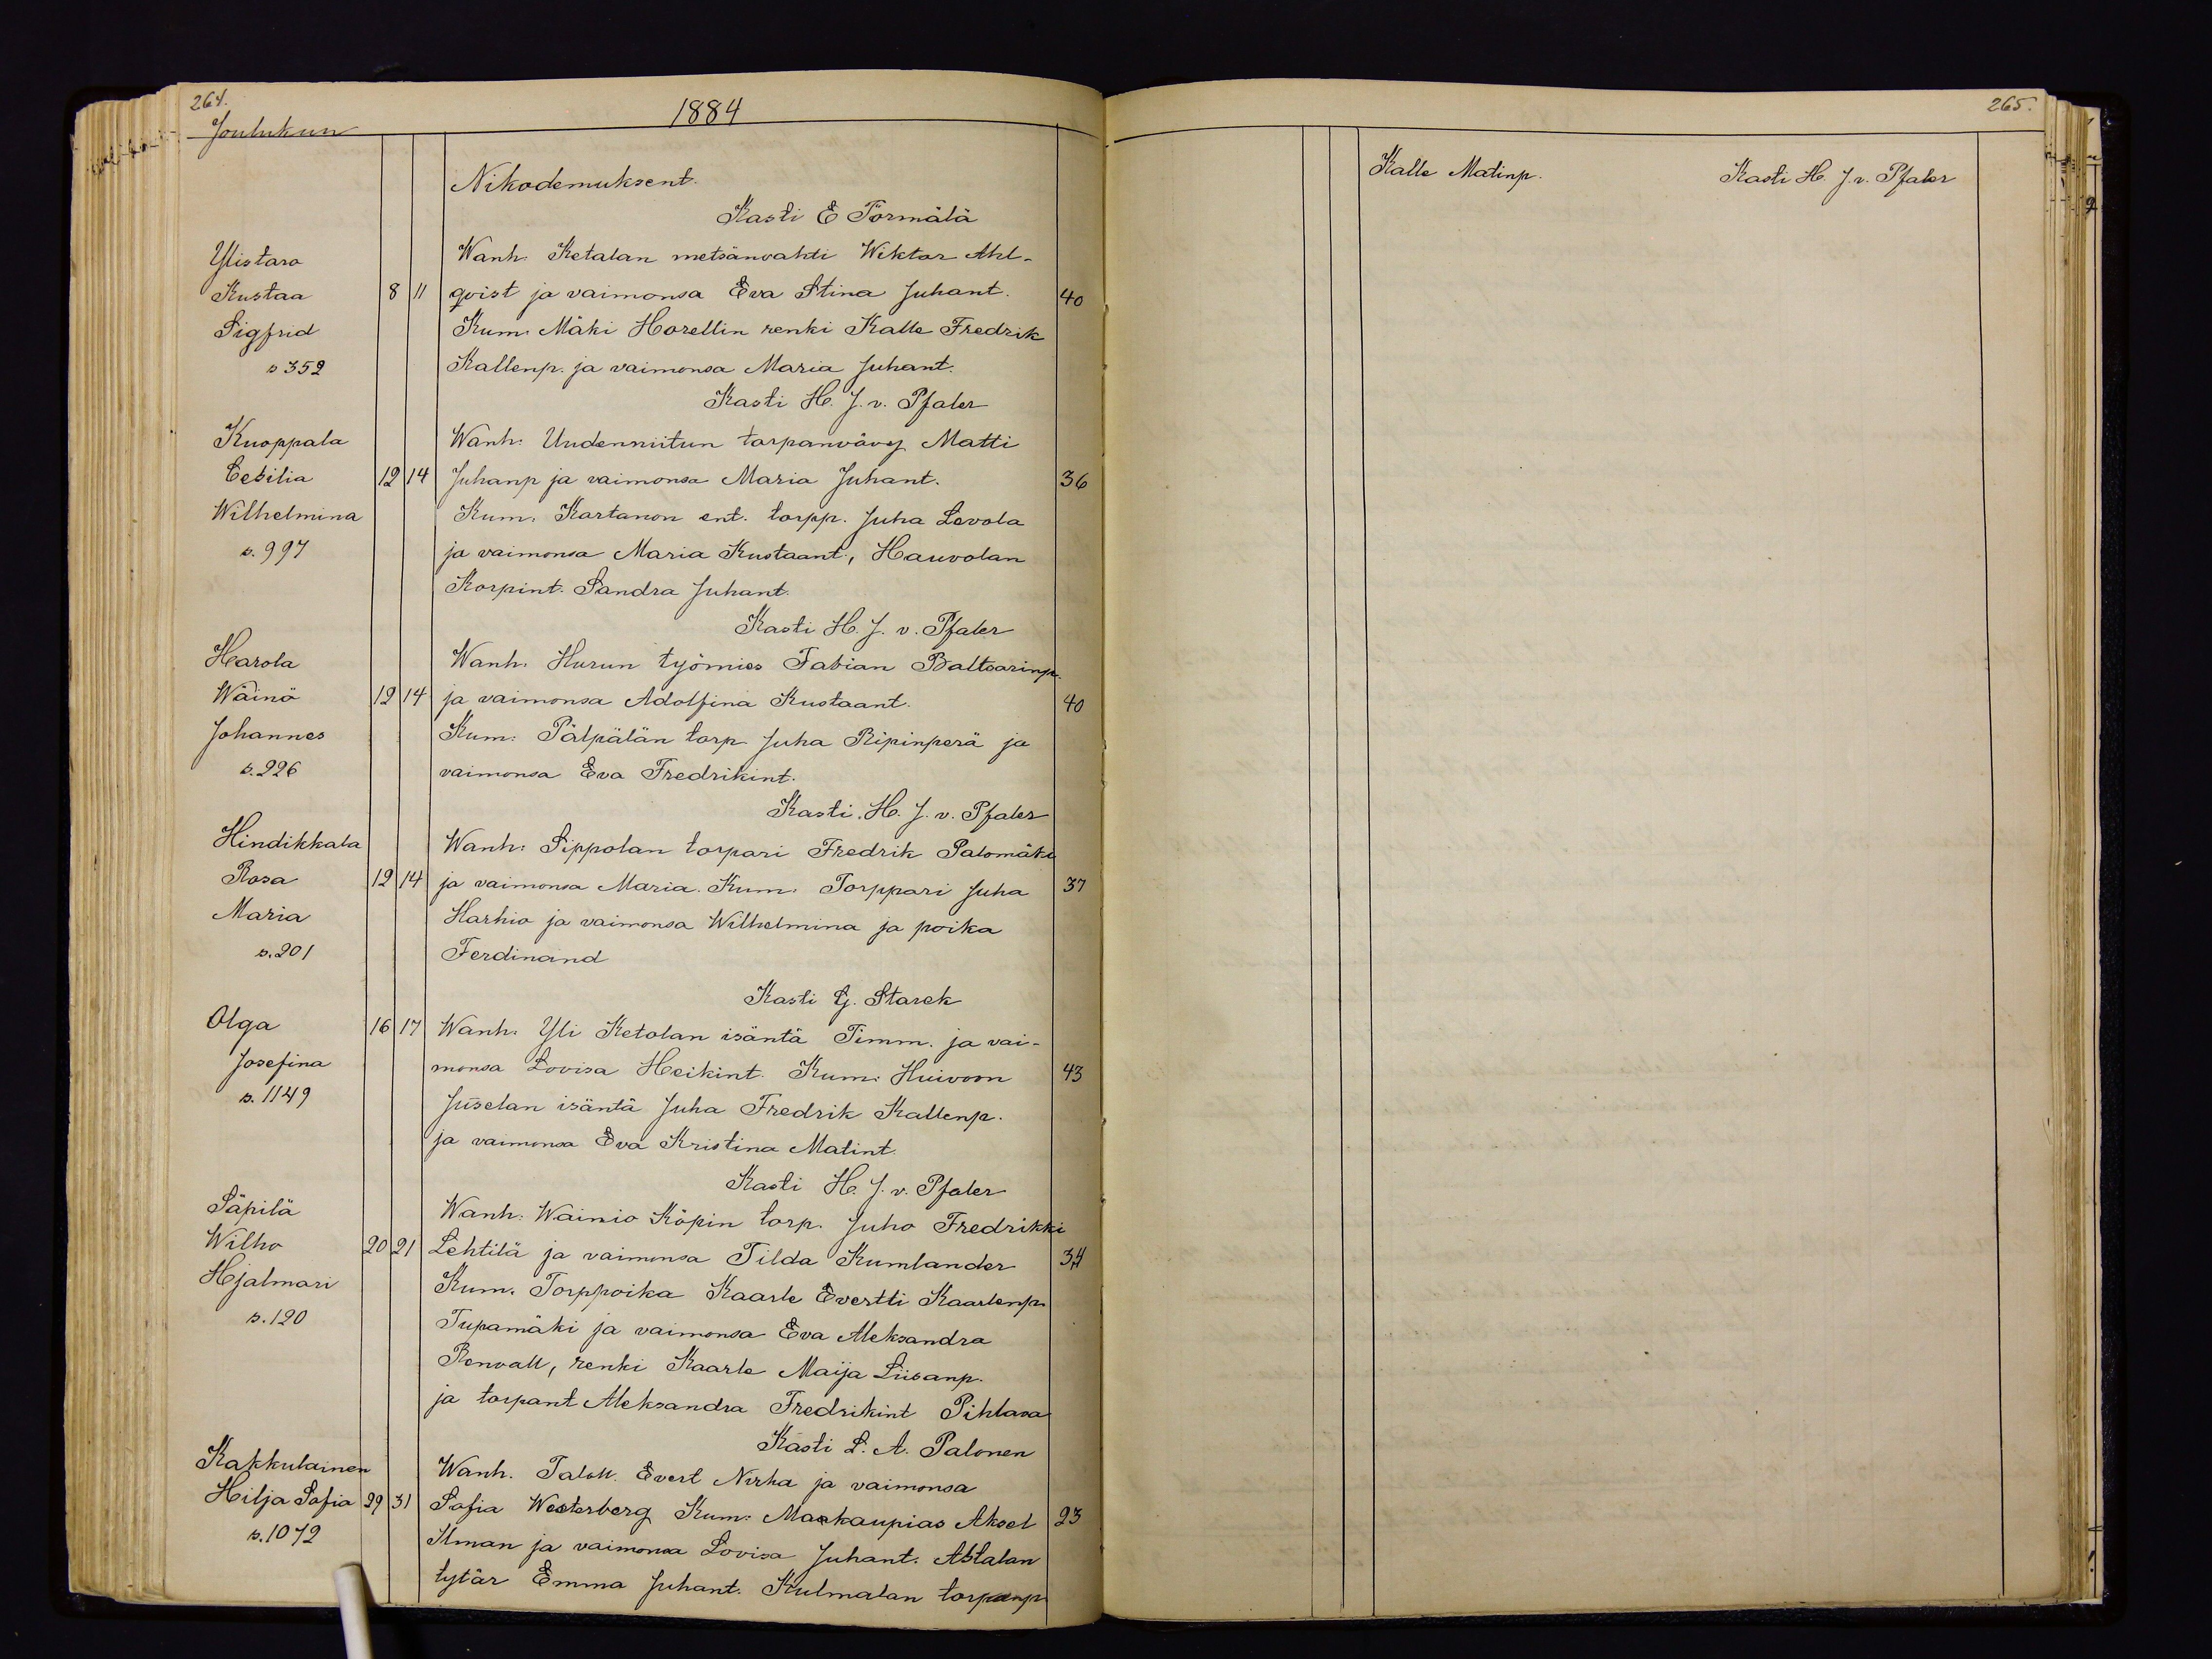 264.
1884
Joulukun
Nikodemuksent.
Kasti E Törmälä
Ylistaro
Wanh. Ketalan metsänvahti Wiktor Ahl-
Kustaa 8 11 qvist ja vaimonsa Eva Stina Juhant. 40
Sigfrid Kum. Mäki Horellin renki Kalle Fredrik
s 352 Kallenp. ja vaimonsa Maria Juhant.
Kasti H. J. v. Pfaler
Kuoppala Wanh. Uudenniitun torpanvävy Matti
Cesilia 12 14 Juhanp ja vaimonsa Maria Juhant. 36
Wilhelmina Kum. Kartanon ent. torpp. Juha Lovola
s. 997 ja vaimonsa Maria Kustaant., Hauvolan
Korpint. Sandra Juhant.
Kasti H. J. v. Pfaler
Harola Wanh. Hurun työmies Fabian Baltsarinp.
Wäinö 12 14 ja vaimonsa Adolfina Kustaant. 40
Johannes Kum. Pälpälän torp Juha Ripinperä ja
s. 226 vaimonsa Eva Fredrikint.
Kasti. H. J. v. Pfaler
Hindikkala Wanh: Sippolan torpari Fredrik Palomäki
Rosa 12 14 ja vaimonsa Maria. Kum. Torppari Juha 37
Maria Harhio ja vaimonsa Wilhelmina ja poika
s. 201 Ferdinand
Kasti G. Starck
Olga 16 17 Wanh. Yli Ketolan isäntä Timm. ja vai-
Josefina monsa Lovisa Heikint. Kum. Huivoon 43
s. 1149 Juselan isäntä Juha Fredrik Kallenp.
ja vaimonsa Eva Kristina Matint.
Kasti H. J. v. Pfaler
Säpilä Wanh. Wainio Köpin torp. Juho Fredrikki
Wilho 20 21 Lehtilä ja vaimonsa Tilda Kumlander 34
Hjalmari Kum. Torppoika Kaarle Evertti Kaarlenp.
s. 120 Tupamäki ja vaimonsa Eva Aleksandra
Renvall, renki Kaarle Maija Liisanp.
ja torpant Aleksandra Fredrikint Pihlava
Kasti L. A. Palonen
Kakkulainen Wanh. Taloll. Evert Nirha ja vaimonsa
Hilja Sofia 29 31 Sofia Westerberg Kum: Maakaupias Aksel 23
s. 1072 Ilman ja vaimonsa Lovisa Juhant. Alstalan
tytär Emma Juhant. Kulmalan torpanp
265.
Kalle Matinp. Kasti H. J. v. Pfaler